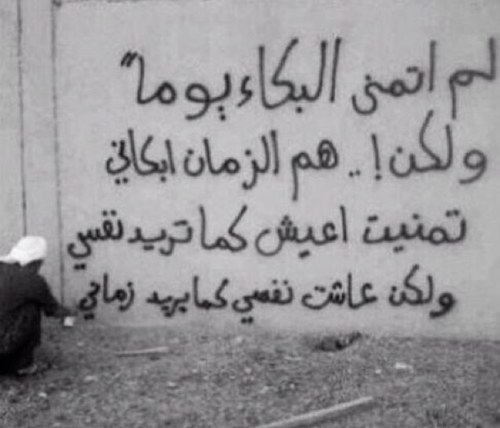 لم اتمنى البكاء يوماً
ولكن!.. هم الزمان ابكاني
تمنيت اعيش كما تريد نفسي
ولكن عاشت نفسي كما يريد زماني